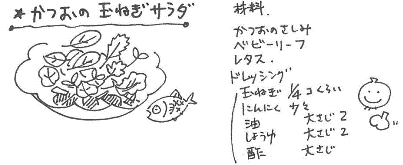 *かつおの 玉ねぎサラダ
材料.
かつおのさしみ
ベビーリーフ
レタス.
ドレッシング
玉ねぎ 1/4コくらい
にんにく 少々
油 大さじ2
しょうゆ 大さじ2
酢 大さじ